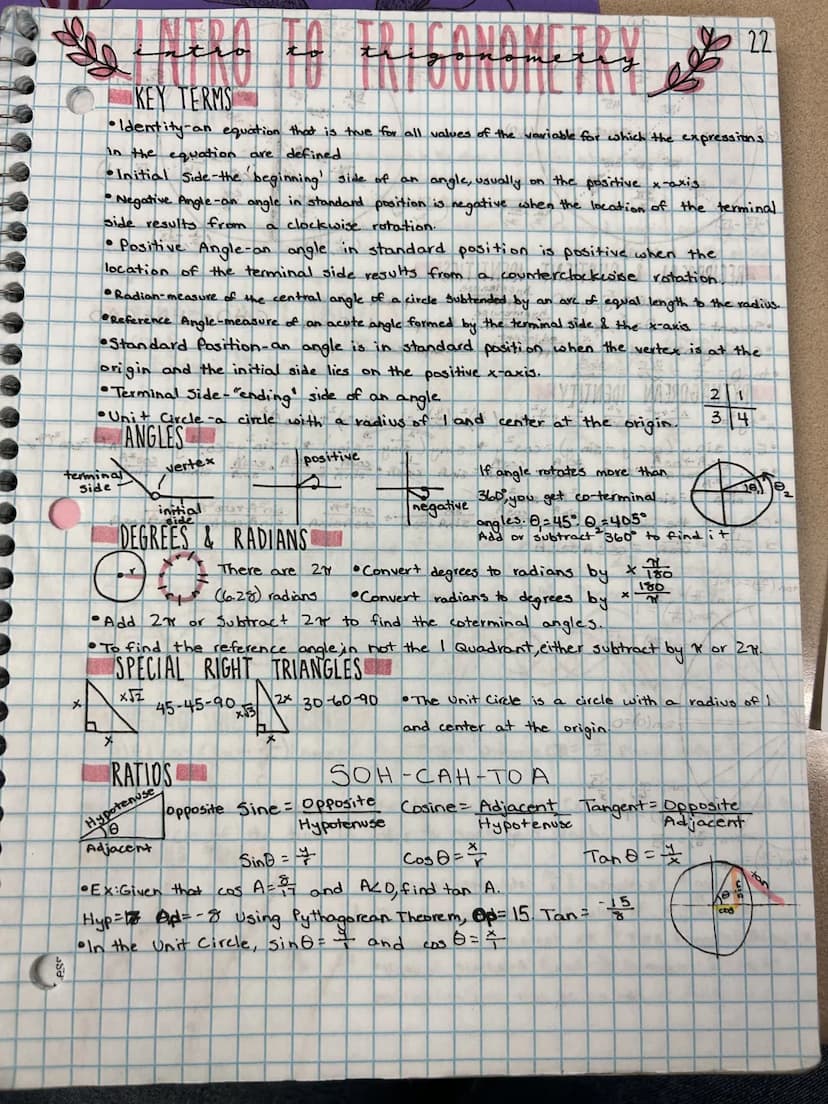 INTRO TO TRIGONOMETRY
intro to trigonometry
22
KEY TERMS
•Identity-an equation that is true for all values of the variable for which the expressions
in the equation are defined
•Initial Side-the 'beginning' side of an angle, usually on the positive x-axis
•Negative Angle-an angle in standard position is negative when the location of the terminal
side results from a clockwise rotation.
•Positive Angle-an angle in standard position is positive when the
location of the terminal side results from a counterclockwise rotation.
•Radian-measure of the central angle of a circle subtended by an arc of equal length to the radius.
•Reference Angle-measure of an acute angle formed by the terminal side & the x-axis
•Standard Position-an angle is in standard position when the vertex is at the
origin and the initial side lies on the positive x-axis.
•Terminal Side-"ending" side of an angle
2 1
•Unit Circle-a circle with a radius of 1 and center at the origin.
3 4
ANGLES
terminal side
vertex
initial side
positive
negative
If angle rotates more than
360°, you get co-terminal
angles. θ₁=45° θ₂=405°
Add or subtract 360° to find it
θ₁ θ₂
DEGREES & RADIANS
r
There are 2π •Convert degrees to radians by × π/180
(6.28) radians •Convert radians to degrees by × 180/π
•Add 2π or Subtract 2π to find the coterminal angles.
•To find the reference angle, in not the 1 Quadrant, either subtract by π or 2π.
SPECIAL RIGHT TRIANGLES
x x√2 x 45-45-90
x√3 2x x 30-60-90
•The Unit Circle is a circle with a radius of 1
and center at the origin.
RATIOS
SOH-CAH-TOA
Hypotenuse
θ
Opposite
Adjacent
Sine = Opposite/Hypotenuse Cosine = Adjacent/Hypotenuse Tangent = Opposite/Adjacent
Sinθ = y/r Cosθ = x/r Tanθ = y/x
•Ex: Given that cos A = 8/17 and A<0, find tan A.
Hyp=17 Ad=-8 Using Pythagorean Theorem, Op=15. Tan = -15/8
•In the Unit Circle, sinθ = y/1 and cos θ = x/1
θ
sin
cos
tan